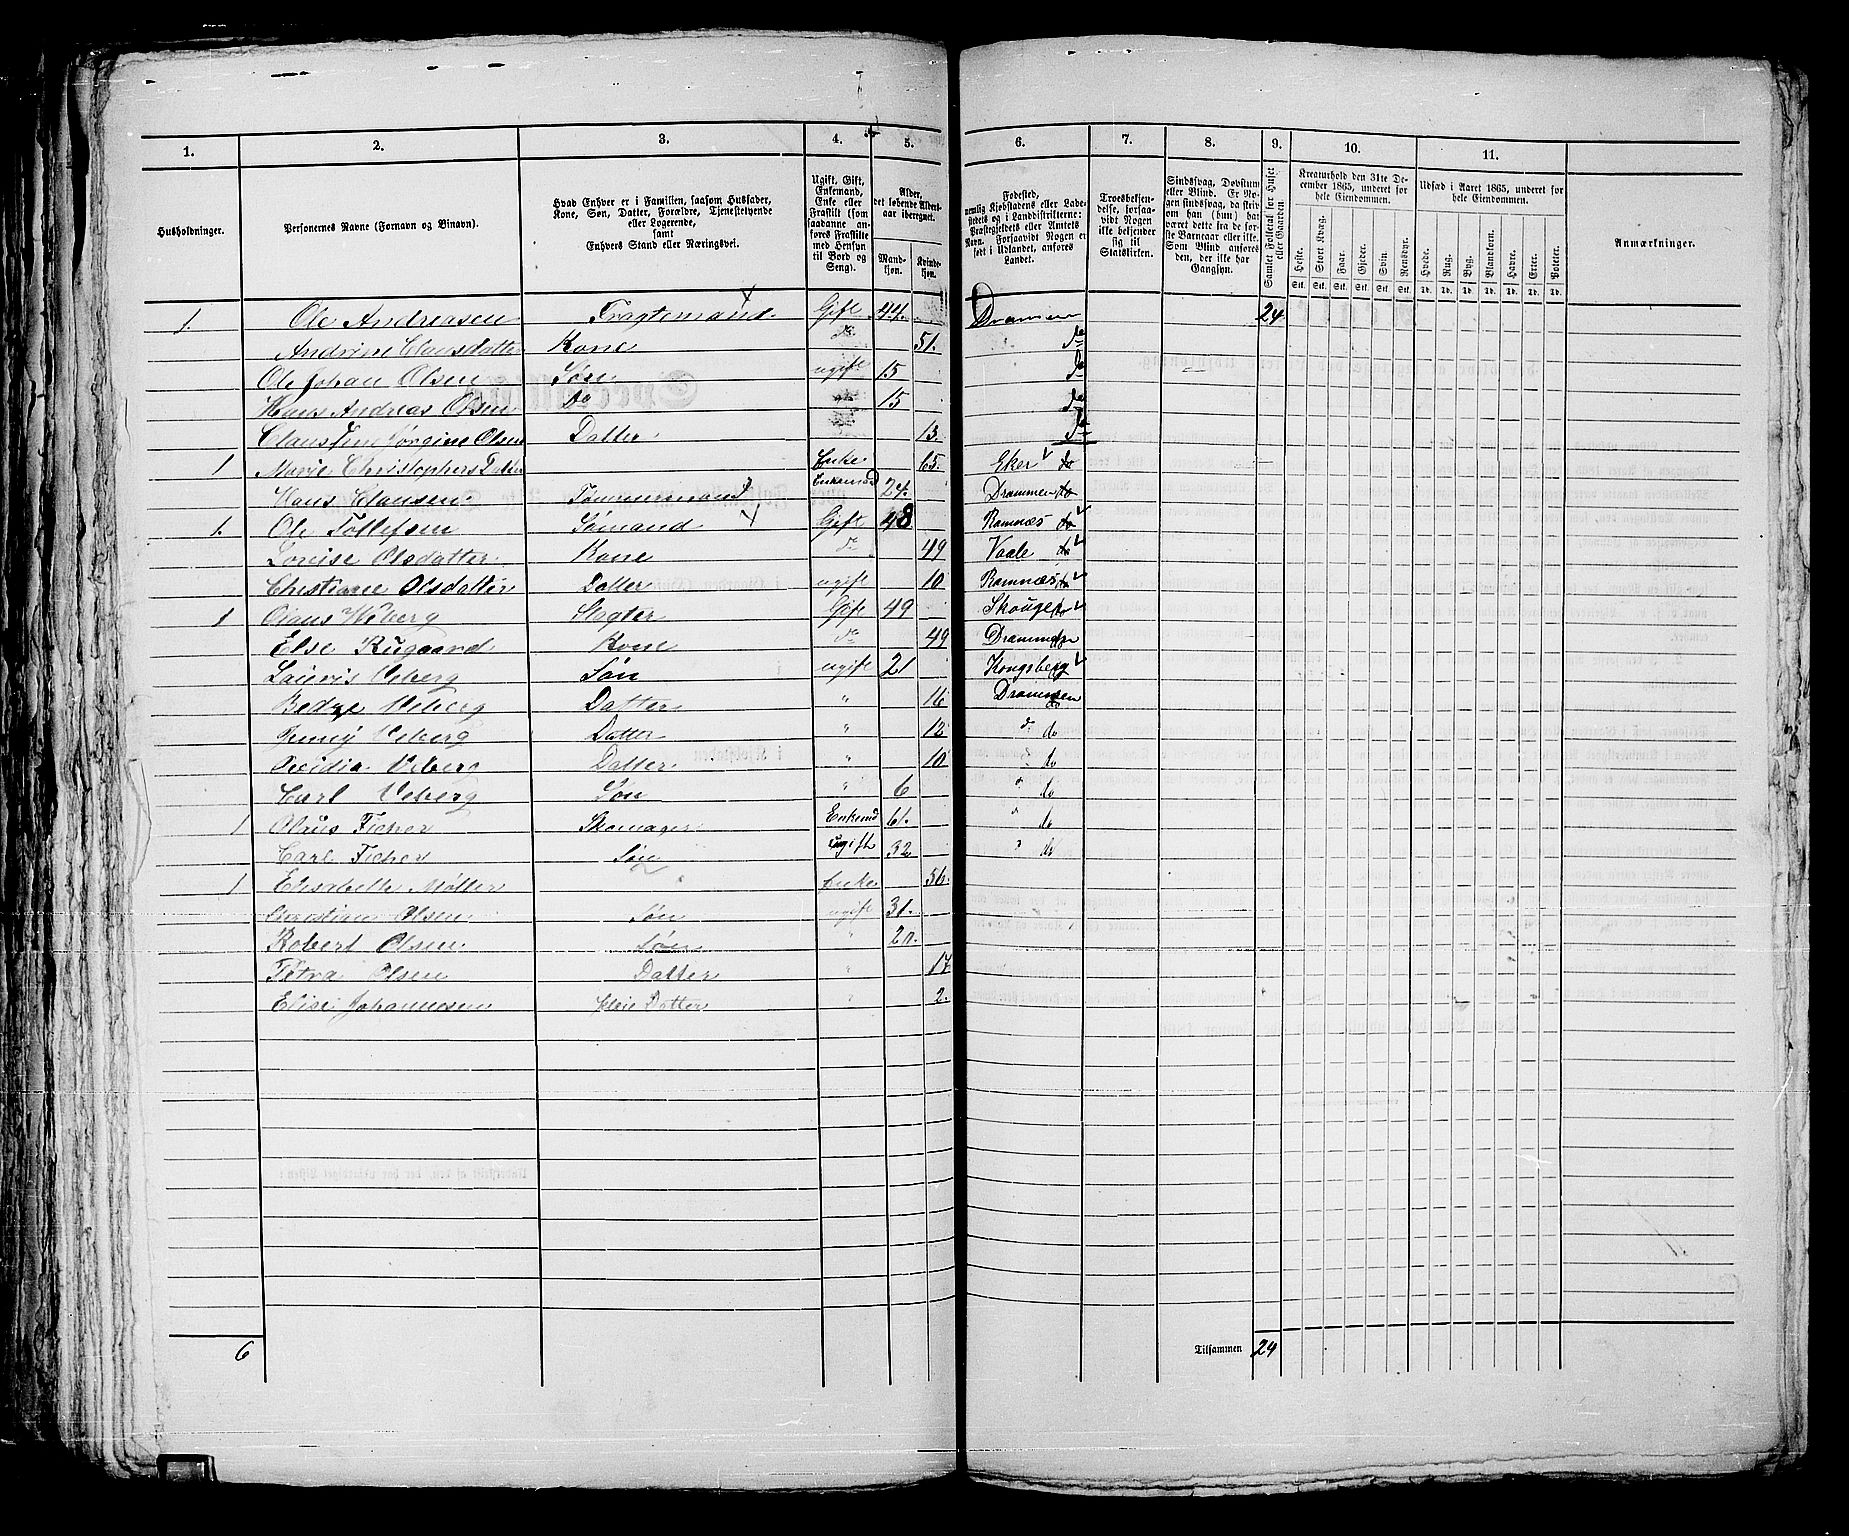 1. 2. 3. 4. 5. 6. 7. 8. 9. 10. 11.
Husholdninger.
Personernes Navne (Fornavn og Binavn).
Hvad Enhver er i Familien, saasom Husfader,
Kone, Søn, Datter, Forældre, Tjenestetyende
eller Logerende,
samt
Enhvers Stand eller Næringsvei.
Ugift, Gift,
Enkemand,
Enke eller
Fraskilt (som
saadanne an-
føres Fraskilte
med Hensyn
til Bord og
Seng).
Alder,
det løbende Alders-
aar iberegnet.
Mand-
kjøn.
Kvinde-
kjøn.
Fødested,
nemlig Kjøbstadens eller Lade-
stedets og i Landdistrikterne:
Præstegjeldets eller Amtets
Navn. Forsaavidt Nogen er
født i Udlandet, anføres
Landet.
Troesbekjen-
delse, forsaa-
vidt Nogen
ikke bekjender
sig til
Statskirken.
Sindssvag, Døvstum
eller Blind. Er No-
gen sindssvag, da skriv
om han (hun) har
været dette fra de før-
ste Barneaar eller ikke.
Som Blind anføres
den, der ikke har
Gangsyn.
Samlet Folketal for Huset
eller Gaarden.
Kreaturhold den 31te De-
cember 1865, underet for
hele Eiendommen.
Heste. Stort Kvæg. Faar. Gjeder. Svin. Rensdyr.
Stk. Stk. Stk. Stk. Stk. Stk.
Udsæd i Aaret 1865, underet for
hele Eiendommen.
Hvede. Rug. Byg. Blandkorn. Havre. Erter. Poteter.
Td. Td. Td. Td. Td. Td. Td.
Anmærkninger.
1. Ole Andreasen Fragtemand Gift 44. Drammen 24
Andrine Clausdatter Kone do 51. do
Ole Johan Olsen Søn ugift 15 do
Hans Andreas Olsen Do 15 do
Jørgine Olsen Datter 13. do
1 Marie Christophers Datter Enke 65. Eker do
Hans Clausen Tømmermand Enkemand 24. Drammen do
1. Ole Tollefsen Sømand Gift 48 Ramnæs do
Lovise Olsdatter Kone do 49 Vaale do
Christiane Olsdatter Datter ugift 10 Ramnæs do
1 Claus Wiberg Slagter Gift 49 Skouge do
Else Rugaard Kone do 49 Drammen do
Viberg Søn ugift 21 Kongsberg
Viberg Datter " 16 Drammen do
Jenny Viberg Datter " 12 do do
Viberg Datter " 10 " do
Carl Viberg Søn " 6 " do
1 Claus Ficher Skomager Enkemd 61. " do
Carl Ficher Søn Ugift 32 " do
1 Elisabeth Møller Enke 56.
Christian Olsen Søn ugift 31.
Robert Olsen Søn " 20.
Petra Olsen Datter " 17
Elise Johannesen Pleie Datter " 2.
6 Tilsammen 24